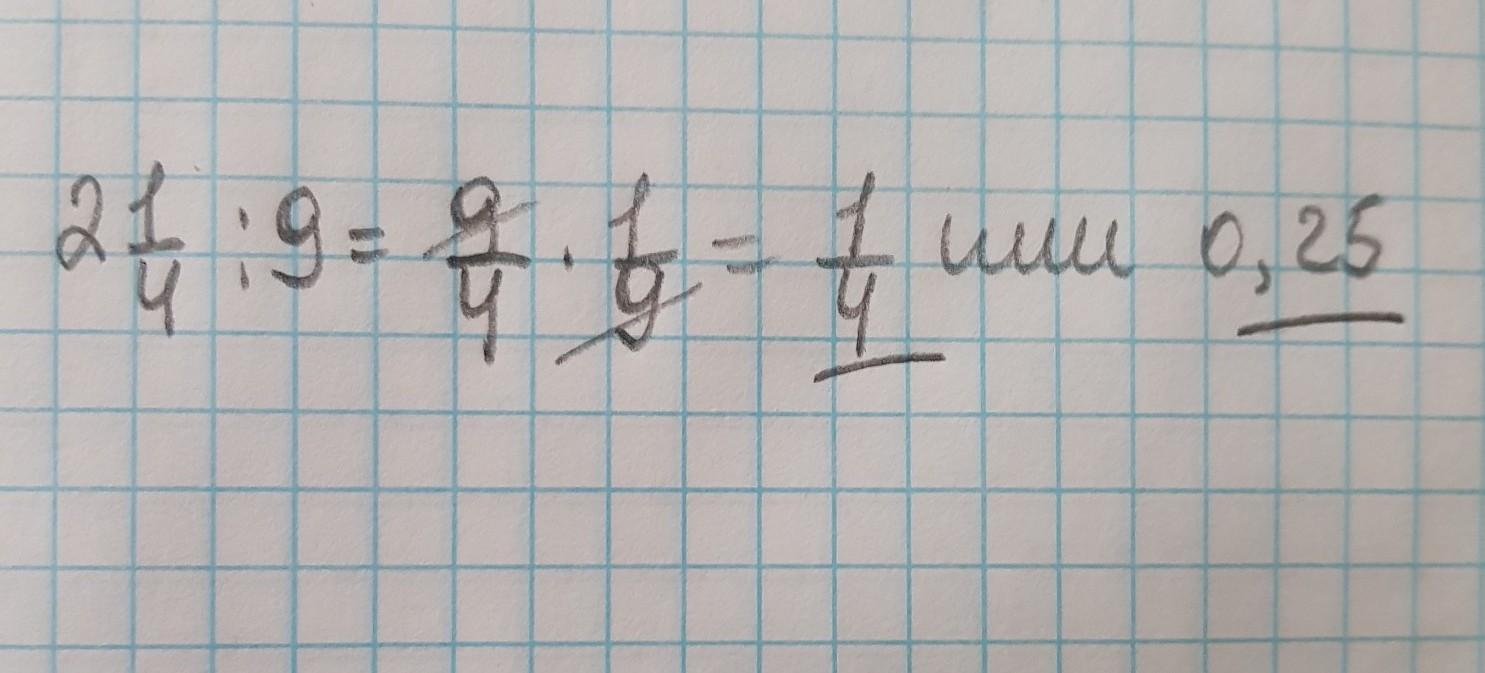 2 1/4 : 9 = 9/4 · 1/9 = 1/4 или 0,25